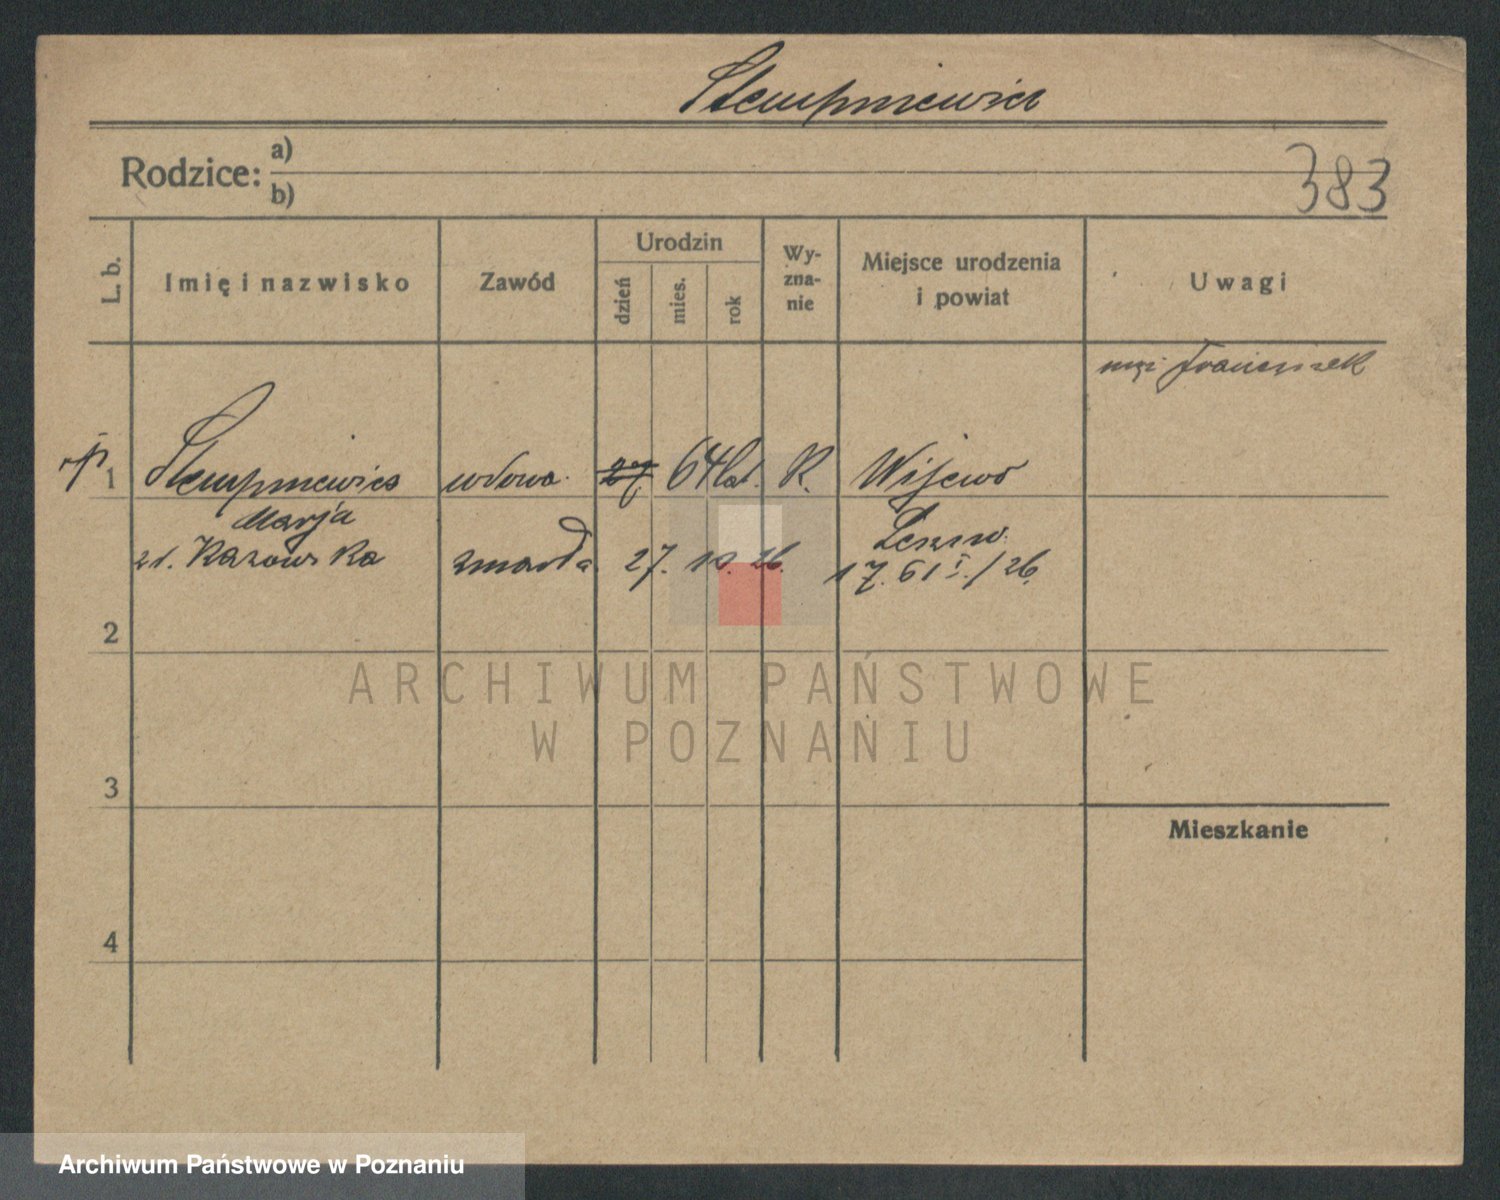 Stempniewicz
Rodzice: a)
b)
383
L. b.
Imię i nazwisko
Zawód
Urodzin
dzień
mies.
rok
Wy-
zna-
nie
Miejsce urodzenia
i powiat
Uwagi
mąż Franciszek
1 Stempniewicz wdowa 64 lat. R. Wijewo
Marja
zd. Kazowska zmarła 27. 10. 26.
17. 61 I./26.
2
3
4
Mieszkanie
ARCHIWUM PAŃSTWOWE
W POZNANIU
Archiwum Państwowe w Poznaniu